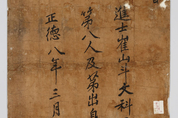 進士崔山斗文科
第八人及第出自
正德八年三月